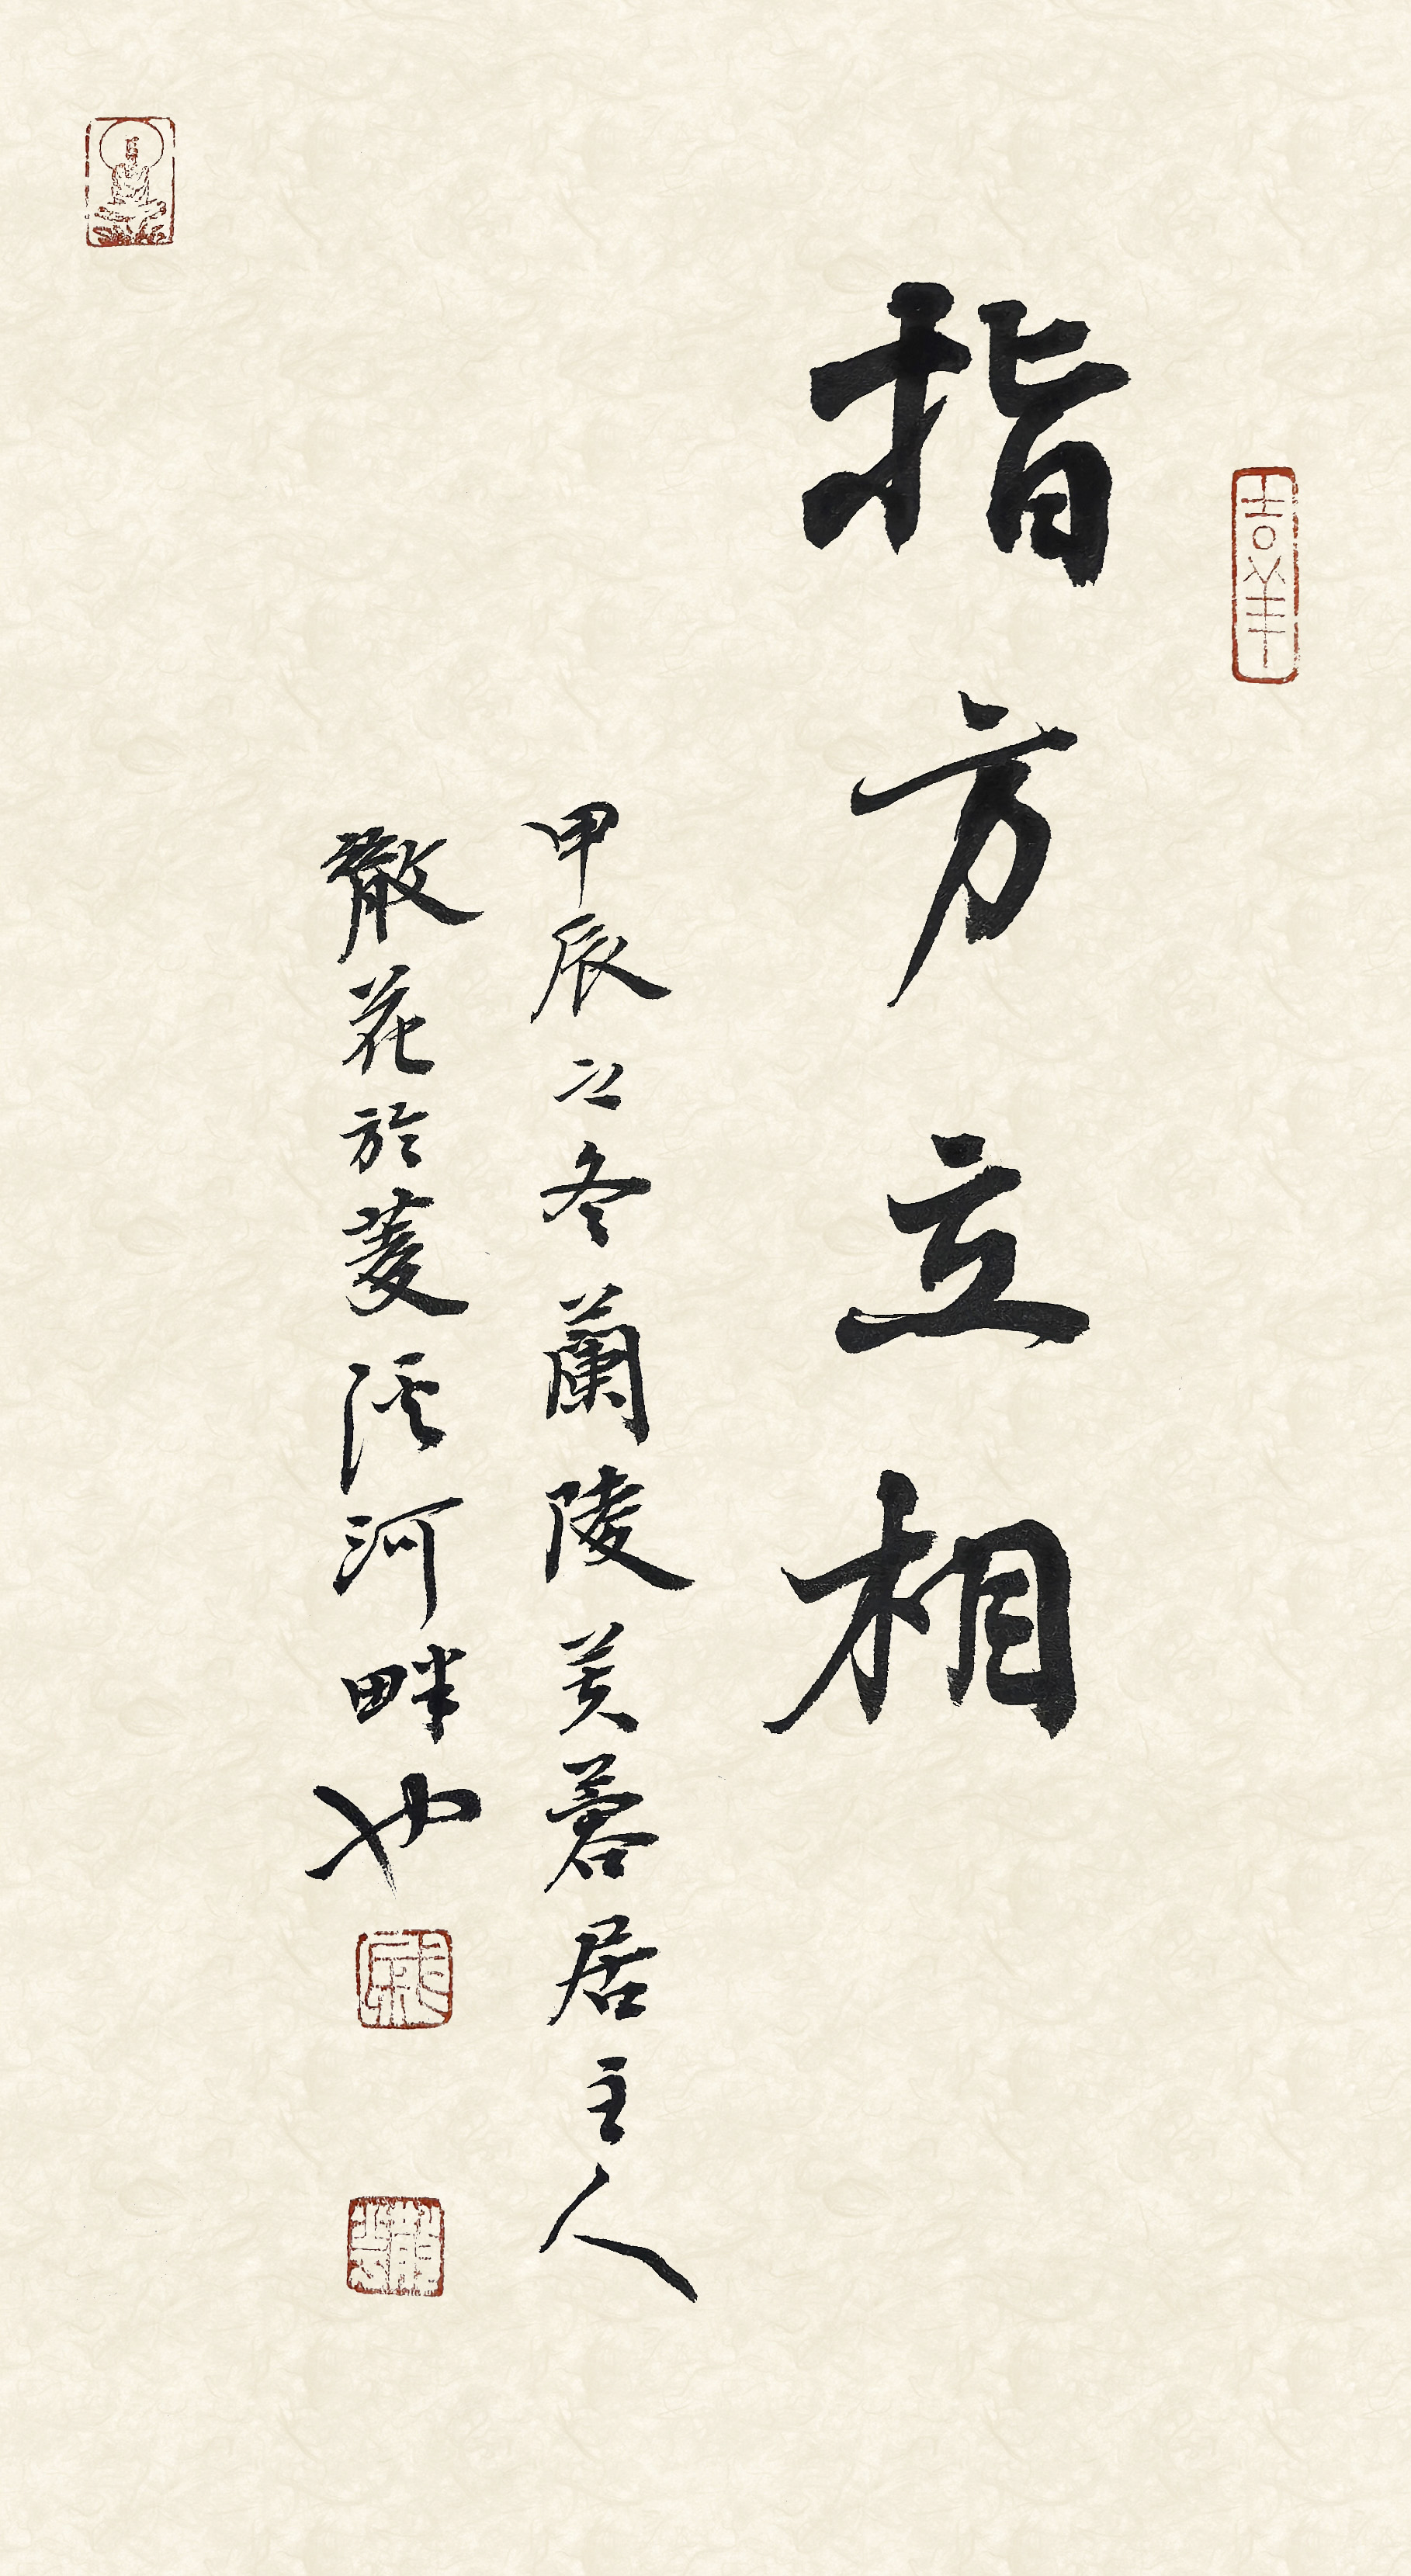 指方立相
甲辰之冬蘭陵芙蓉居主人
散花於菱溪河畔也
吉羊